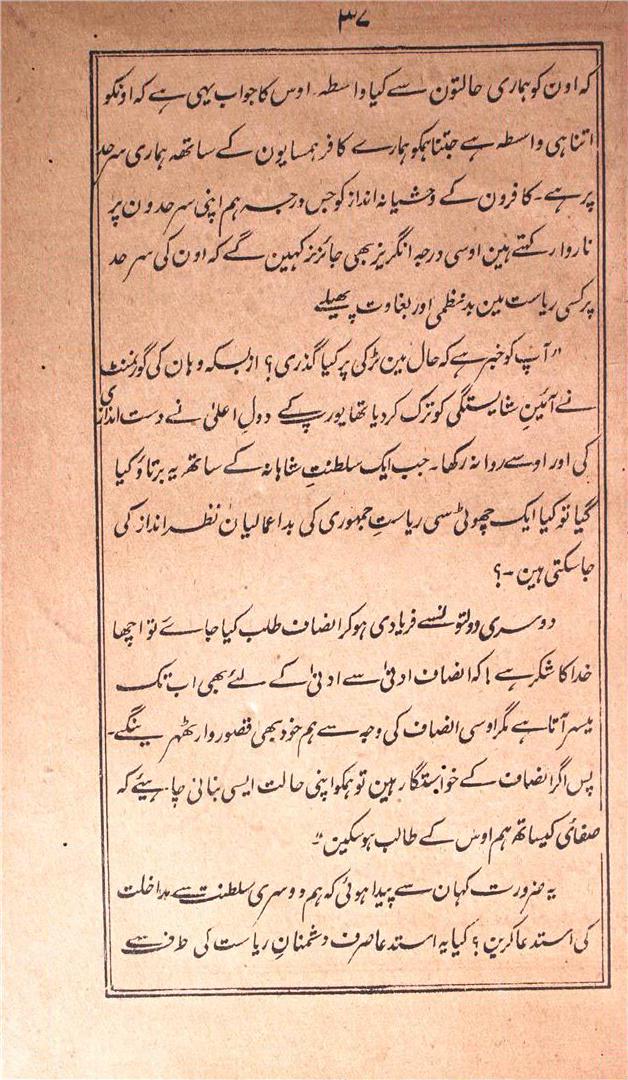 ۳۷
کہ اون کو ہماری حالتون سے کیا واسطہ۔ اوس کا جواب یہی ہے کہ اونکو
اتنا ہی واسطہ ہے جتنا ہمکو ہمارے کافر ہمسایون کے ساتھہ ہماری سرحد
پر ہے۔ کافرون کے وحشیانہ انداز کو جس درجہ ہم اپنی سرحدون پر
ناروا رکہتے ہین اوسی درجہ انگریز بھی جائز نہ کہین گے کہ اون کی سرحد
پر کسی ریاست مین بدنظمی اور بغاوت پھیلے
"آپ کو خبر ہے کہ حال مین ٹرکی پر کیا گذری؟ ازبسکہ وہان کی گورنمنٹ
نے آئینِ شایستگی کو ترک کر دیا تھا یورپ کے دولِ اعلیٰ نے دست اندازی
کی اور اوسے روا نہ رکھا۔ جب ایک سلطنتِ شاہانہ کے ساتھہ یہ برتاؤ کیا
گیا تو کیا ایک چھوٹی سی ریاستِ جمہوری کی بداعمالیان نظر انداز کی
جاسکتی ہین۔؟
دوسری دولتونسے فریادی ہوکر انصاف طلب کیا جاے تو اچھا
خدا کا شکر ہے! کہ انصاف ادنیٰ سے ادنیٰ کے لئے بھی اب تک
میسر آتا ہے مگر اوسی انصاف کی وجہ سے ہم خود بھی قصوروار ٹھہرینگے۔
پس اگر انصاف کے خواستگار ہین تو ہمکو اپنی حالت ایسی بنانی چاہیئے کہ
صفائی کیساتھ ہم اوس کے طالب ہوسکین"۔
یہ ضرورت کہان سے پیدا ہوئی کہ ہم دوسری سلطنت سے مداخلت
کی استدعا کرین؟ کیا یہ استدعا صرف دشمنانِ ریاست کی طرف سے